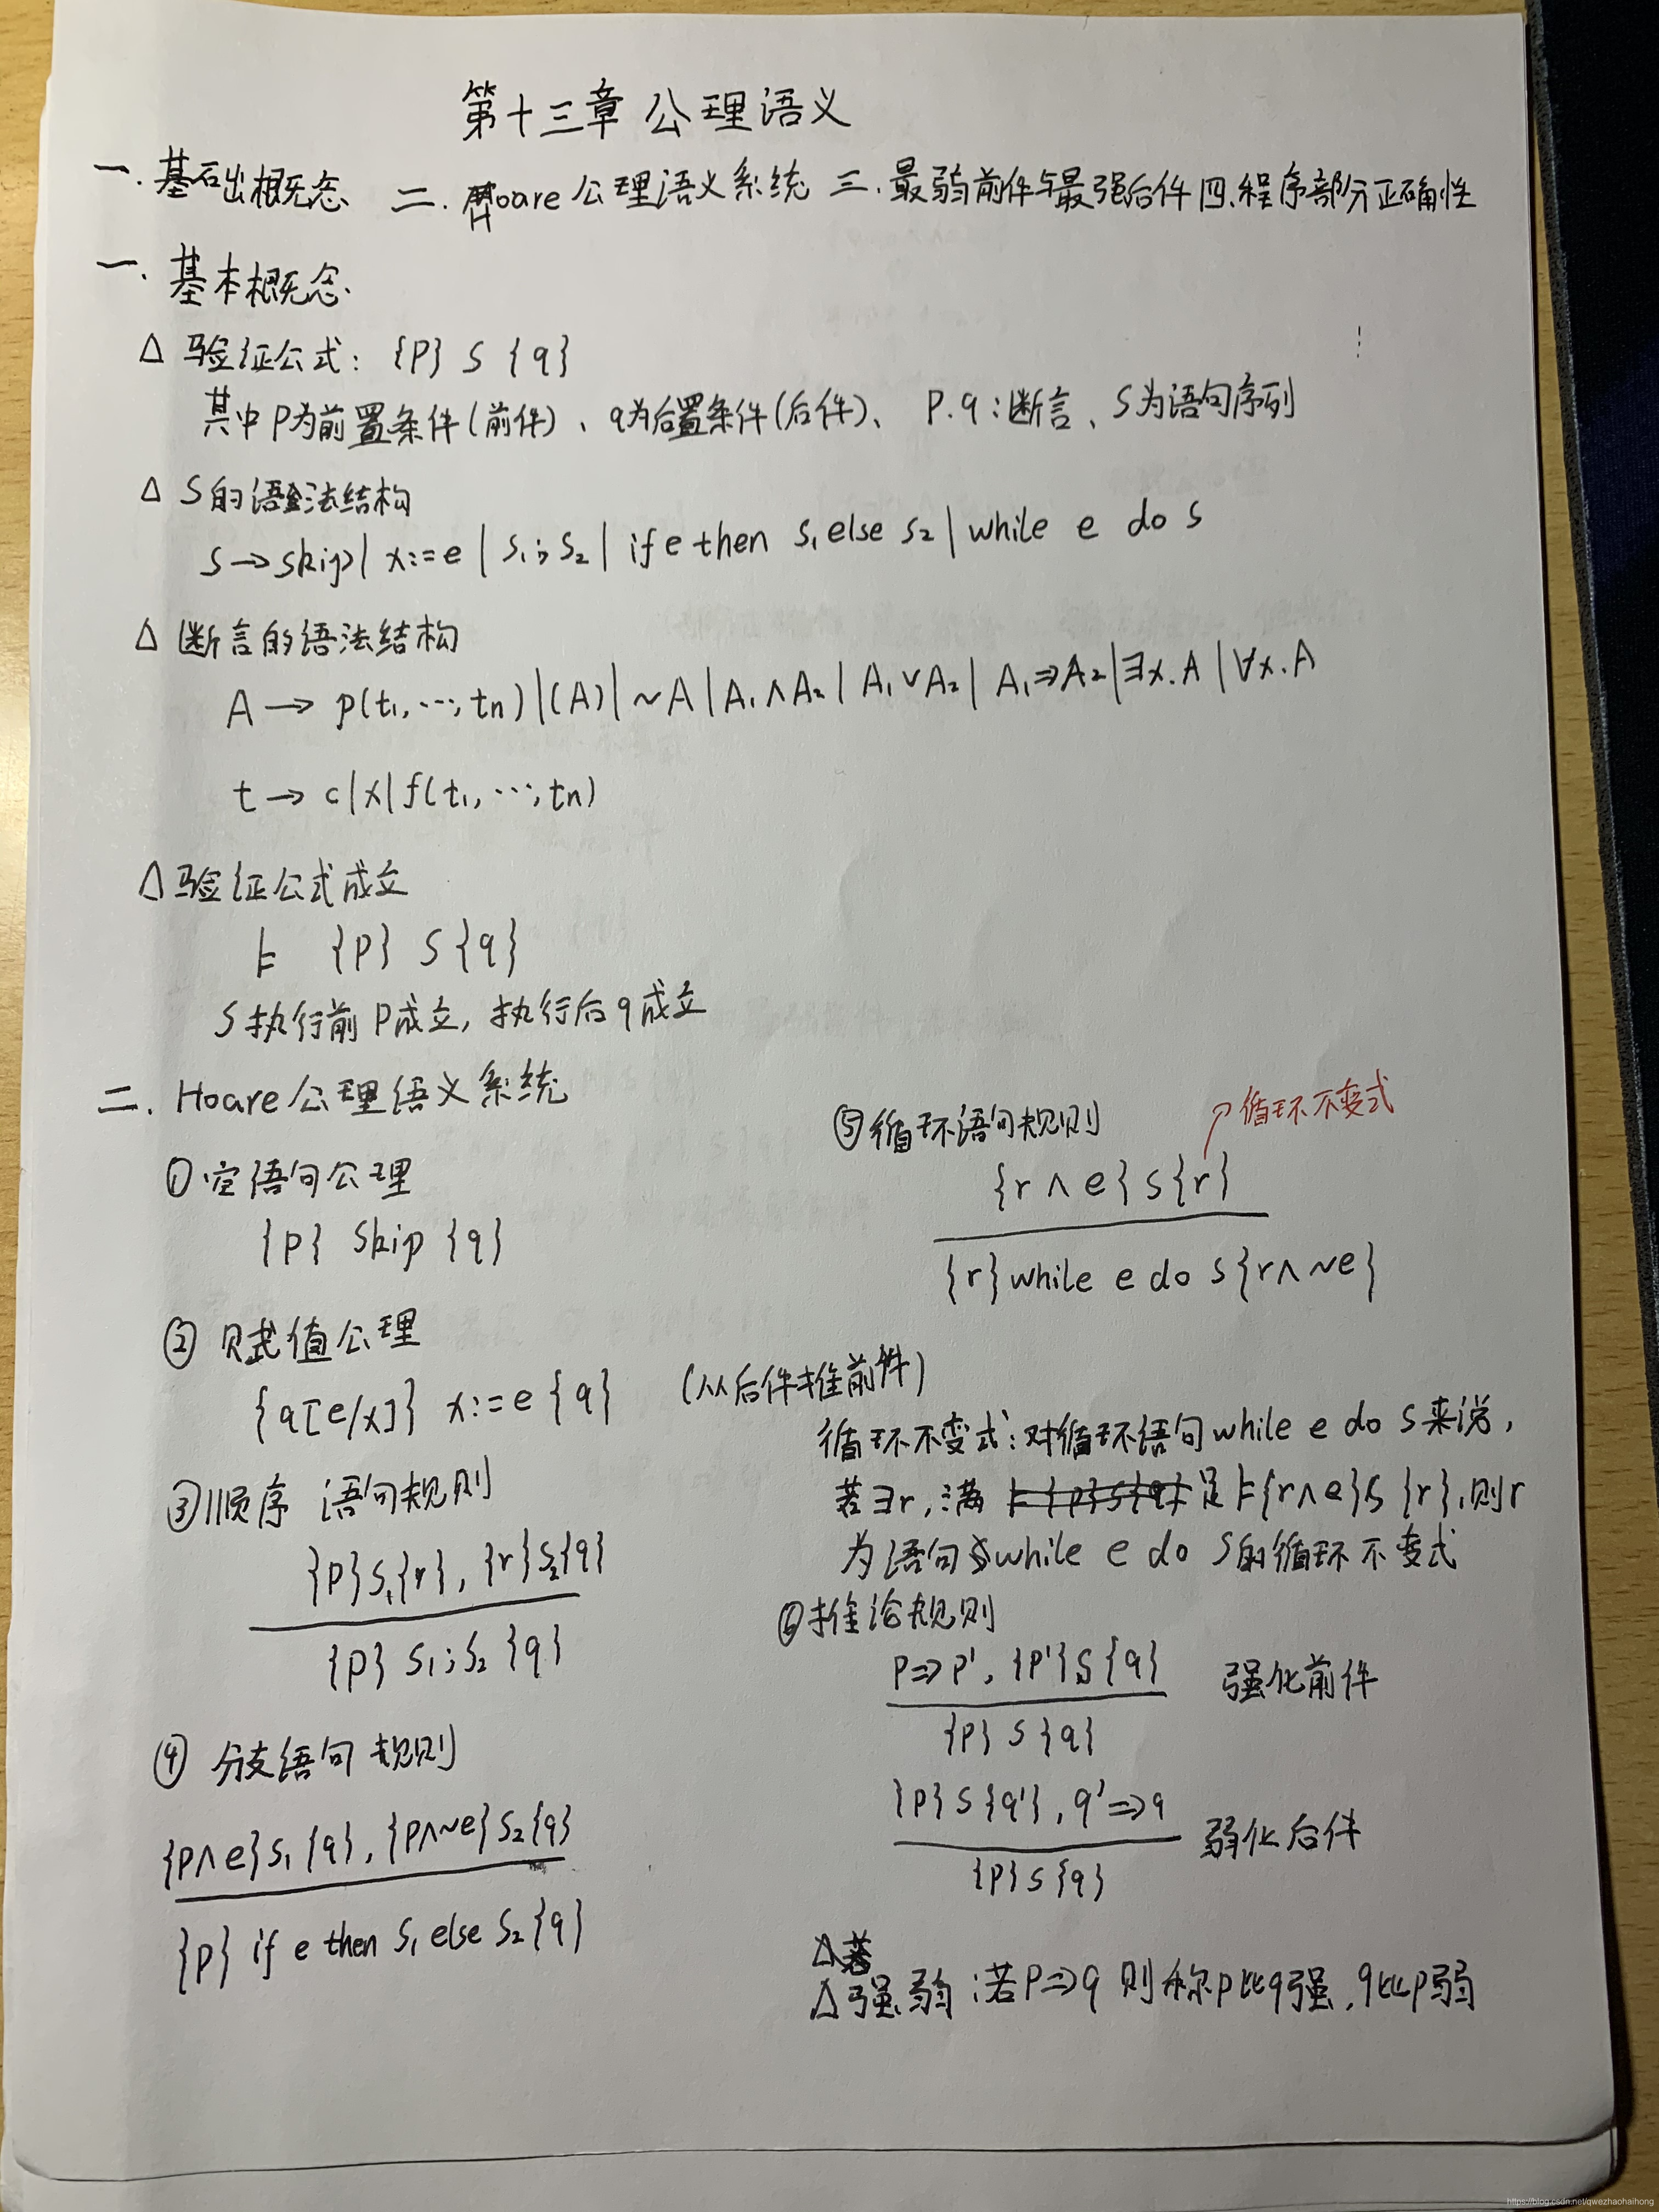 第十三章 公理语义
一.基础概念 二.Hoare公理语义系统 三.最弱前件与最强后件 四.程序部分正确性
一.基本概念.
△ 验证公式: {P} S {q}
其中P为前置条件(前件)、q为后置条件(后件)、P.q:断言、S为语句序列
△ S的语法结构
S→skip| x:=e | S₁;S₂ | if e then S₁ else S₂ | while e do S
△ 断言的语法结构
A → p(t₁,…,tn)|(A)|~A|A₁∧A₂|A₁∨A₂|A₁⇒A₂|∃x.A|∀x.A
t → c|x|f(t₁,…,tn)
△验证公式成立
⊧ {P} S {q}
S执行前P成立,执行后q成立
二.Hoare公理语义系统
①空语句公理
{P} skip {q}
②赋值公理
{q[e/x]} x:=e {q} (从后件推前件)
③顺序语句规则
{P}S₁{r}, {r}S₂{q}
{P} S₁;S₂ {q}
④ 分支语句规则
{P∧e}S₁{q}, {P∧~e}S₂{q}
{P} if e then S₁ else S₂ {q}
⑤循环语句规则
↗循环不变式
{r∧e}S{r}
{r}while e do S{r∧~e}
循环不变式:对循环语句while e do S来说,
若∃r,满足⊧{r∧e}S{r},则r
为语句while e do S的循环不变式
⑥推论规则
P⇒P', {P'}S{q} 强化前件
{P} S {q}
{P}S{q'}, q'⇒q 弱化后件
{P}S{q}
△若
△强弱:若P⇒q 则称P比q强,q比P弱
https://blog.csdn.net/qwezhaohaihong